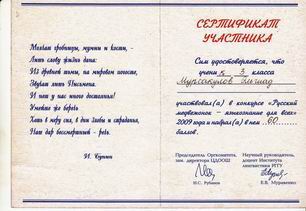 Молчат гробницы, мумии и кости, -
Лишь слову жизнь дана:
Из древней тьмы, на мировом погосте,
Звучат лишь Письмена.
И нет у нас иного достояния!
Умейте же беречь
Лишь в меру сил, в дни злобы и страдания,
Наш дар бессмертный - речь.
И. Бунин
СЕРТИФИКАТ
УЧАСТНИКА
Сим удостоверяется, что
учени к 3 класса
Мурсакулов
участвовал(а) в конкурсе «Русский
медвежонок - языкознание для всех»
2009 года и набрал(а) в нем 60
баллов.
Председатель Оргкомитета,
зам. директора ЦДООШ
И.С. Рубанов
Научный руководитель,
доцент Института
лингвистики РГГУ
Е.В. Муравенко